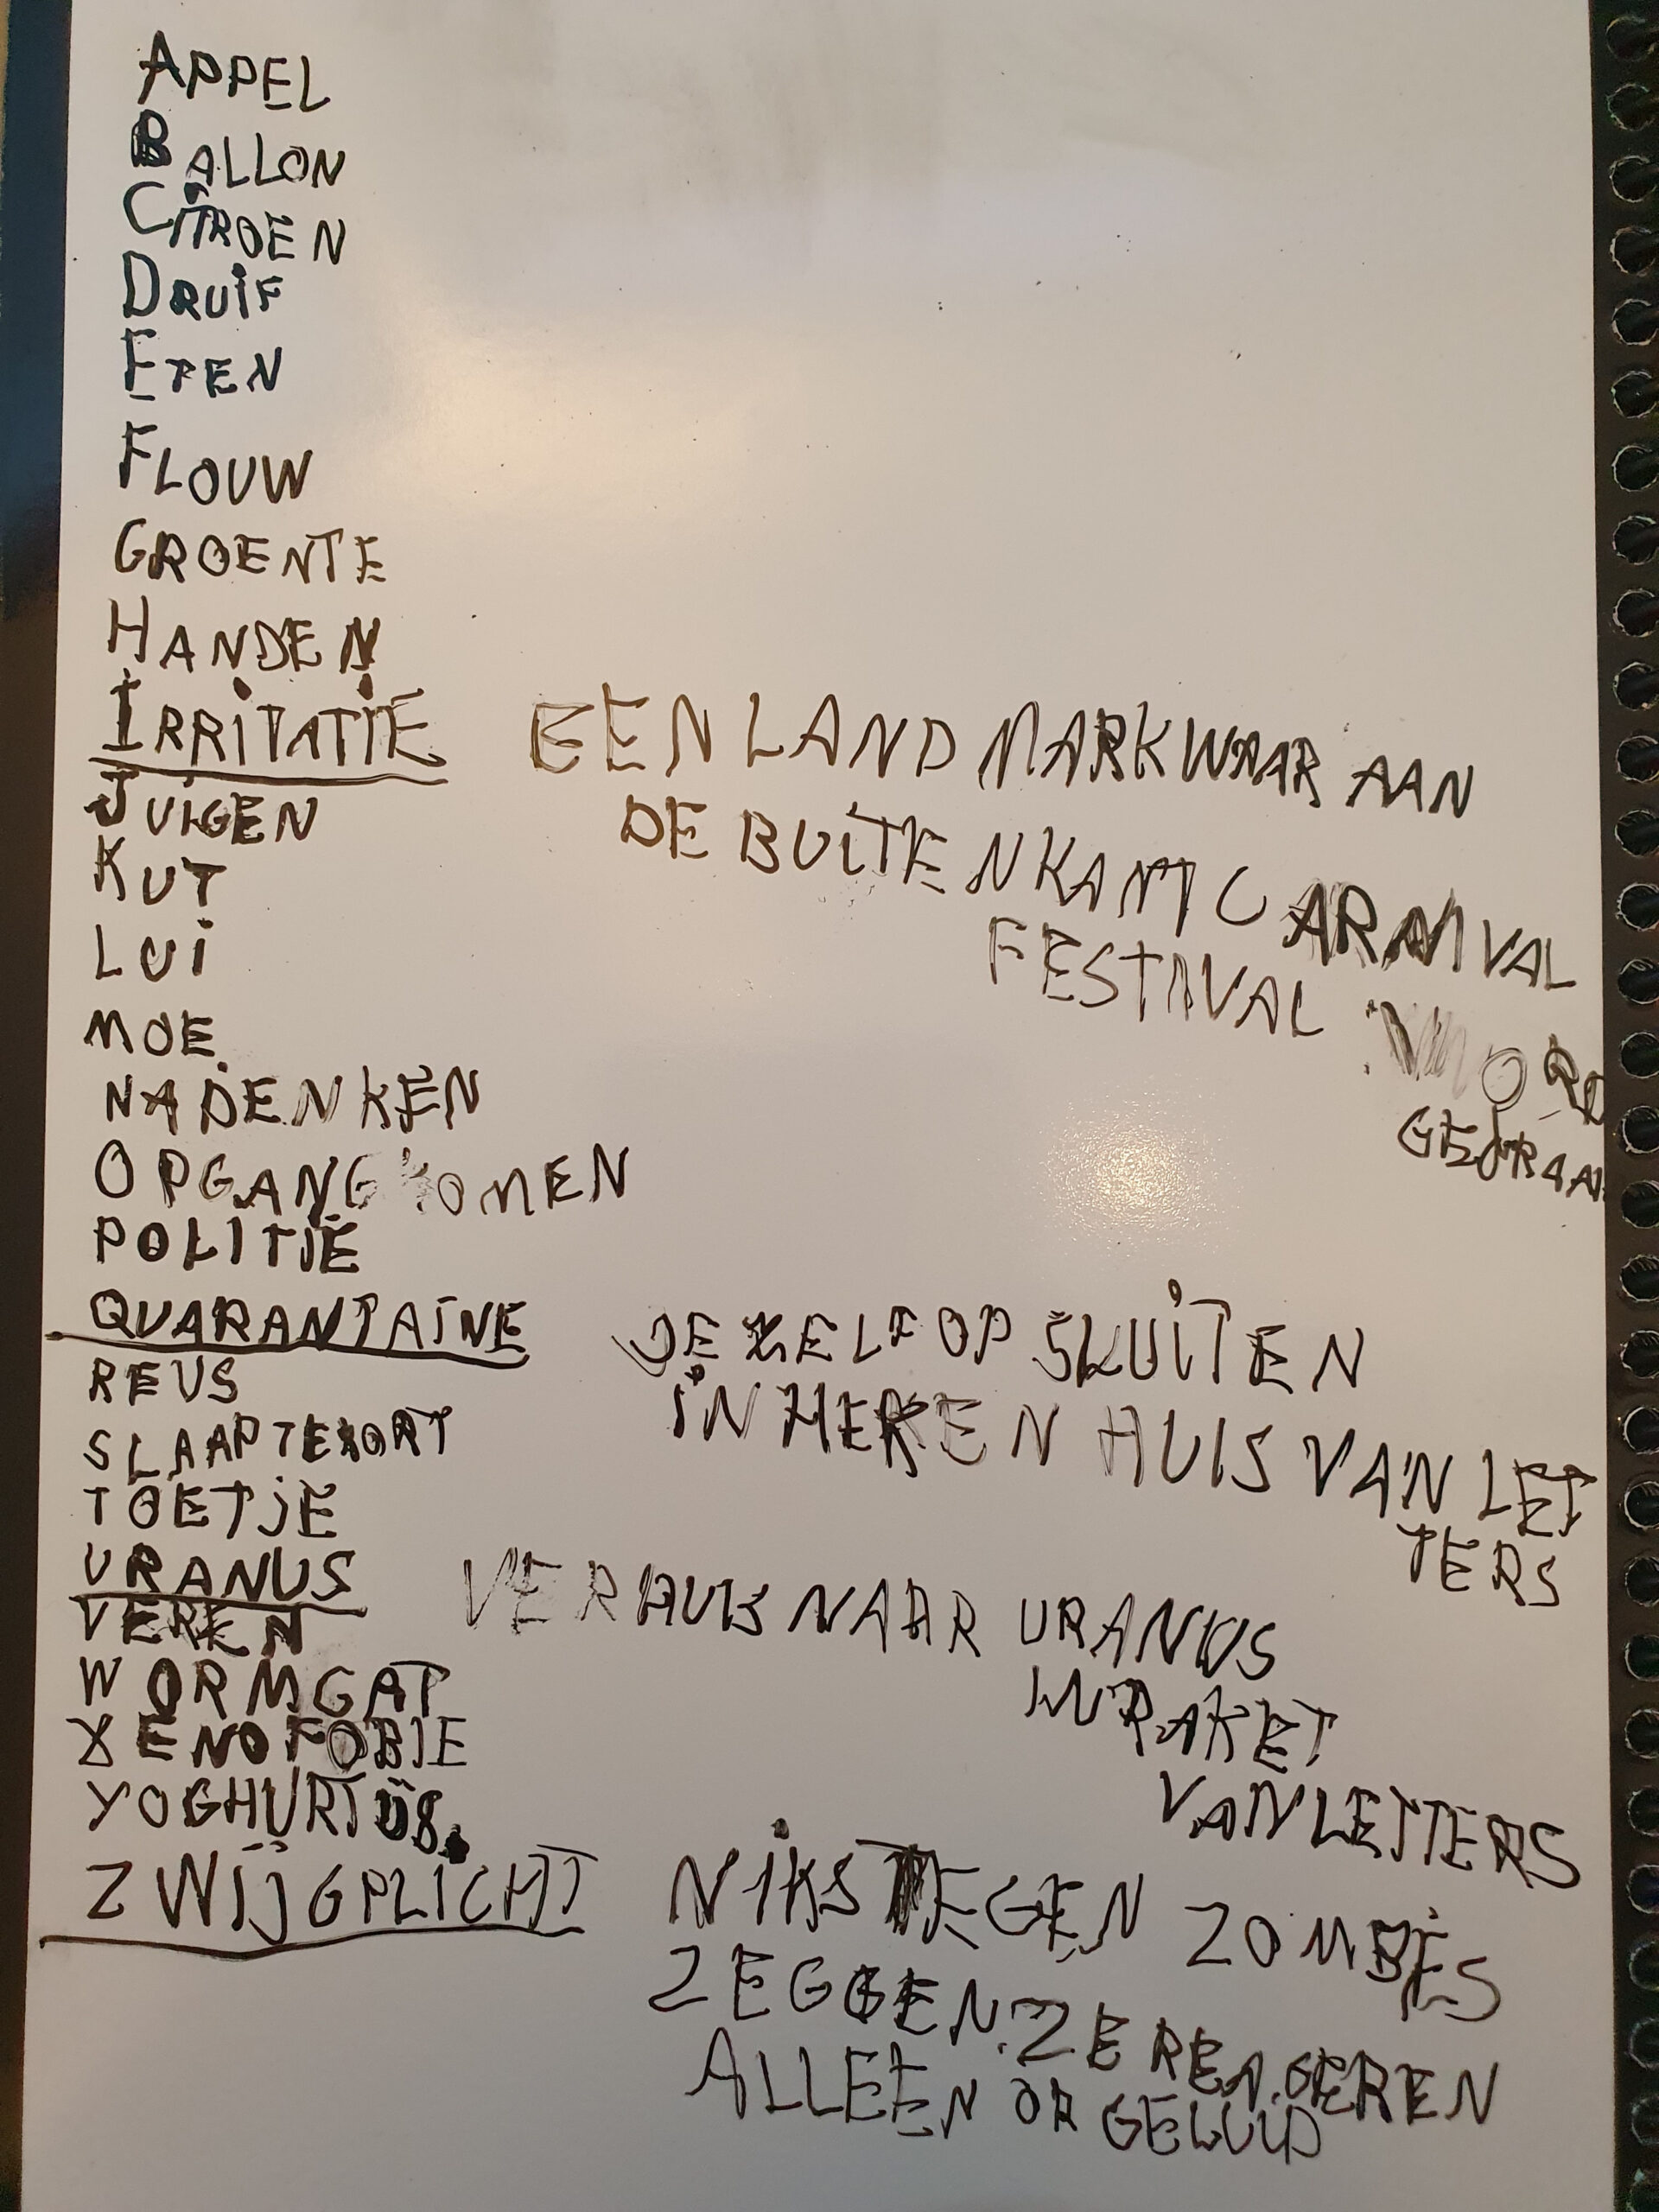 APPEL
BALLON
CITROEN
DRUIF
ETEN
FLOUW
GROENTE
HANDEN
IRRITATIE
JUIGEN
KUT
LUI
MOE
NADENKEN
OPGANG KOMEN
POLITIE
QUARANTAINE
REUS
SLAAPTEKORT
TOETJE
URANUS
VEREN
WORMGAT
XENOFOBIE
YOGHURTIJS
ZWIJGPLICHT
EEN LAND MARK WAAR AAN
DE BUITENKANT CARNIVAL
FESTIVAL WORD
JE ZELF OP SLUITEN
IN HEREN HUIS VAN LET
TERS
VERHUIS NAAR URANUS
IN RAKET
VAN LETTERS
NIKS TEGEN ZOMBIES
ZEGGEN. ZE REAGEREN
ALLEEN OP GELUID